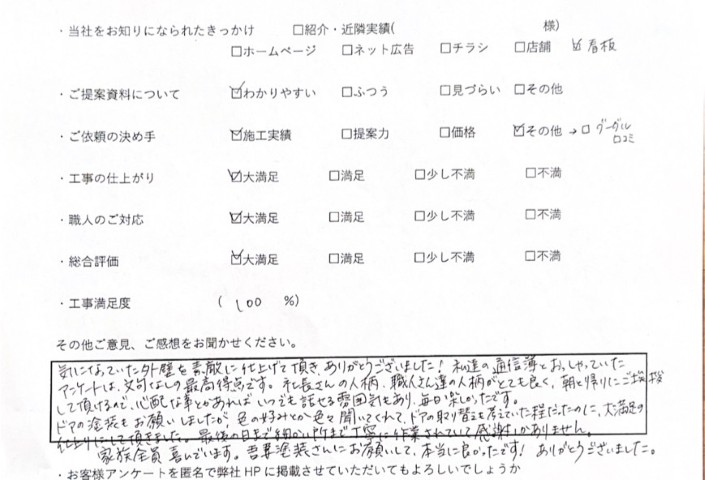 ・当社をお知りになられたきっかけ □紹介・近隣実績( 様)
□ホームページ □ネット広告 □チラシ □店舗 ☑看板
・ご提案資料について ☑わかりやすい □ふつう □見づらい □その他
・ご依頼の決め手 ☑施工実績 □提案力 □価格 ☑その他→□グーグル
口コミ
・工事の仕上がり ☑大満足 □満足 □少し不満 □不満
・職人のご対応 ☑大満足 □満足 □少し不満 □不満
・総合評価 ☑大満足 □満足 □少し不満 □不満
・工事満足度 ( 100 %)
その他ご意見、ご感想をお聞かせください。
気になっていた外壁を素敵に仕上げて頂き、ありがとうございました！私達の通信簿とおっしゃっていた
アンケートは、文句なしの最高得点です。社長さんの人柄、職人さん達の人柄がとても良く、朝と帰りにご挨拶
して頂けるので、心配な事とかあればいつでも話せる雰囲気もあり、毎日楽しかったです。
ドアの塗装もお願いしましたが、色の好みとか色々聞いてくれて、ドアの取り替えを考えていた程だったのに、大満足の
仕上りにして頂きました。最後の日まで細かい所まで丁寧に作業されていて感謝しかありません。
家族全員喜んでいます。吾妻塗装さんにお願いして、本当に良かったです！ありがとうございました。
・お客様アンケートを匿名で弊社HPに掲載させていただいてもよろしいでしょうか